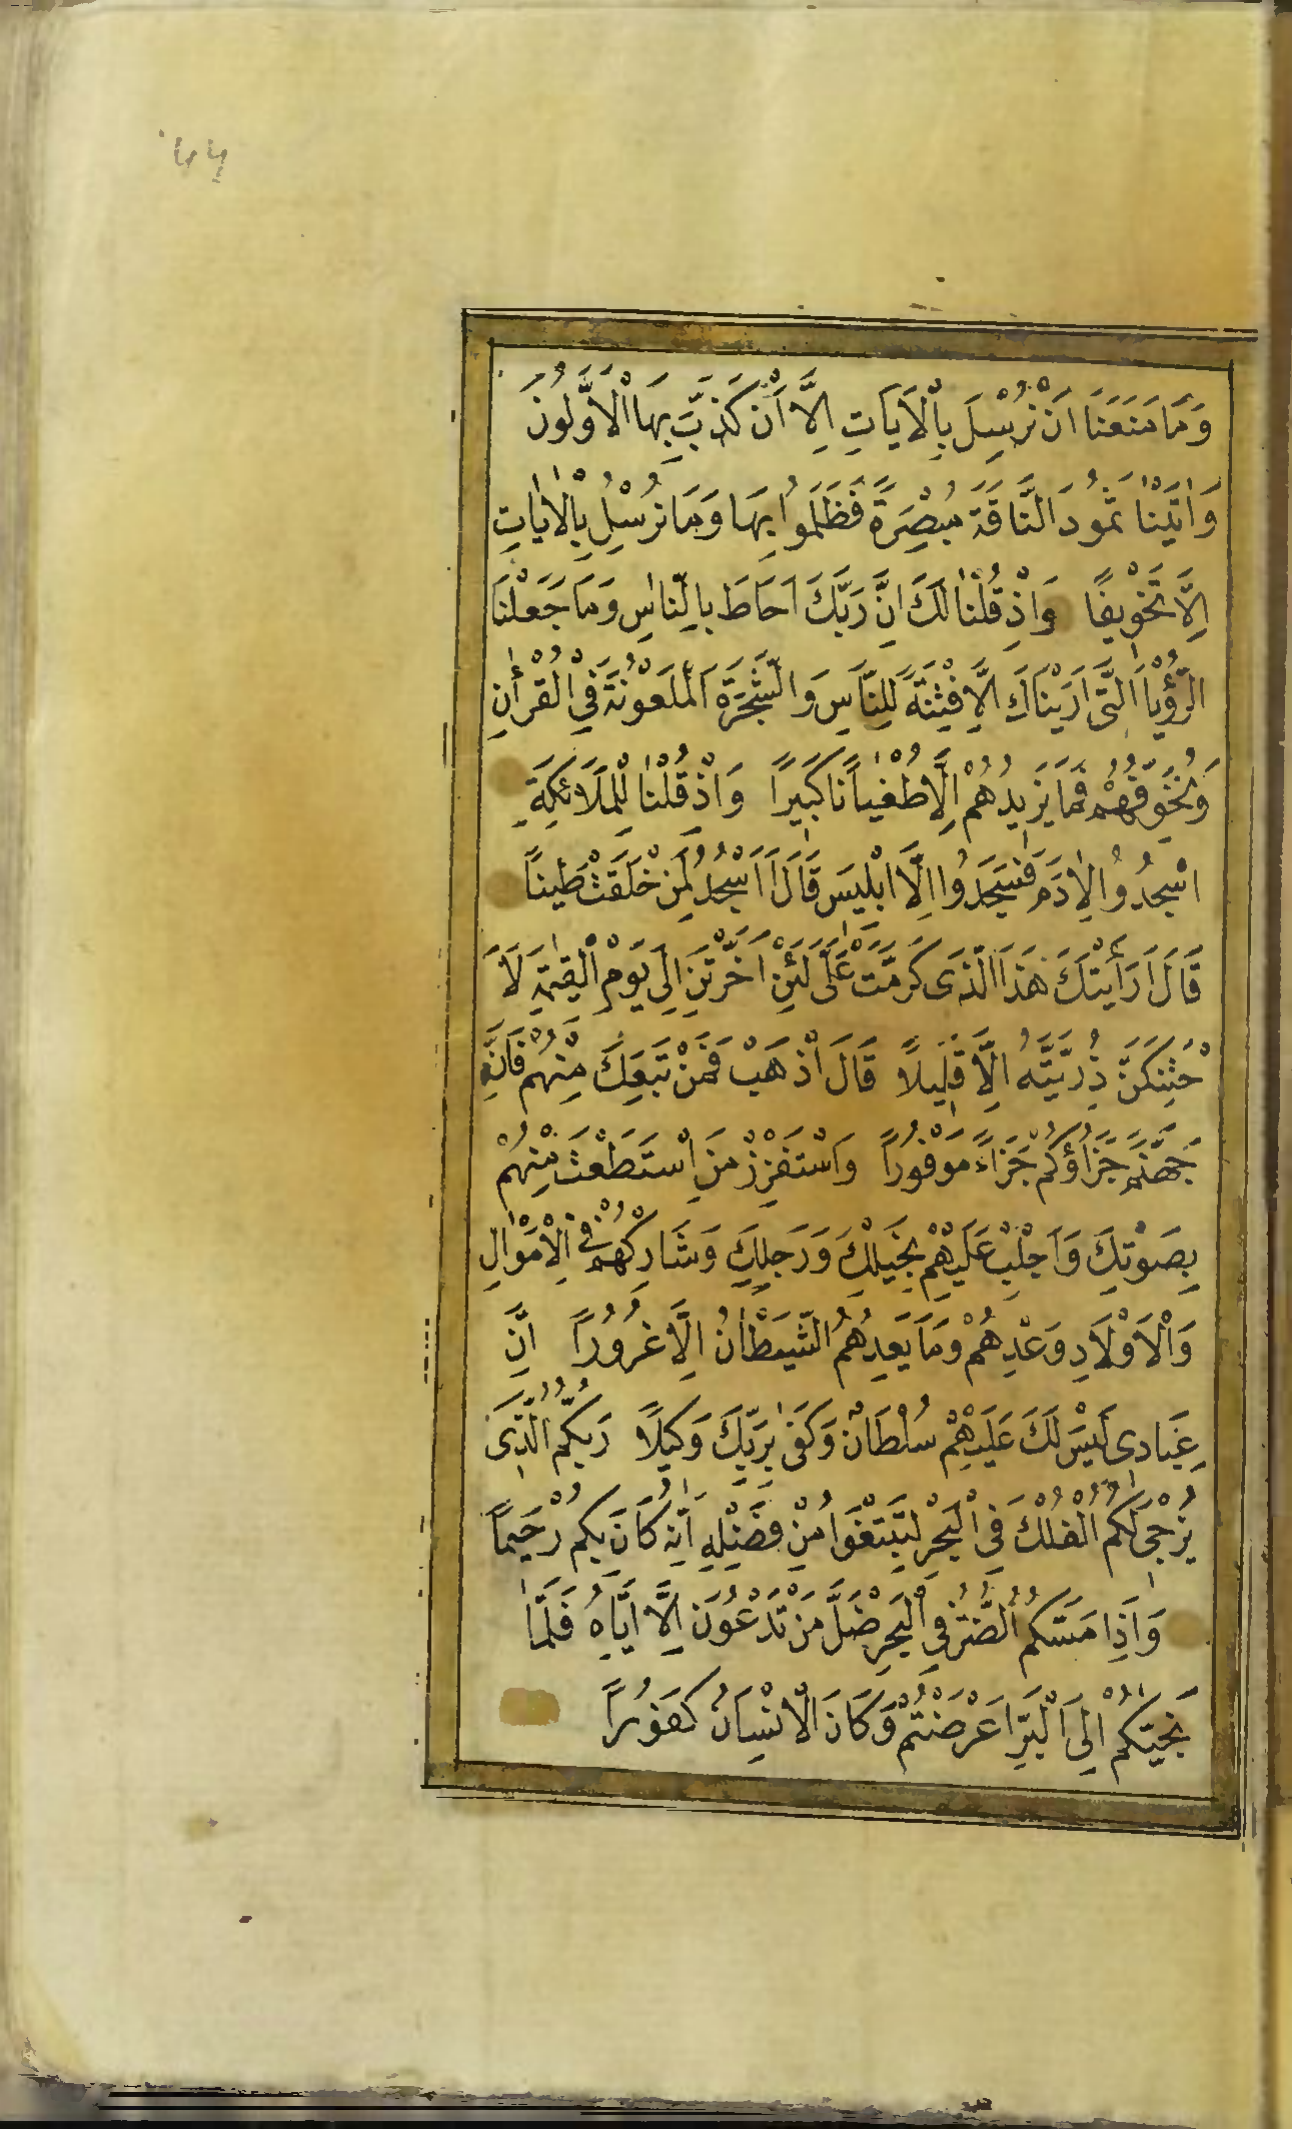 وَمَا مَنَعَنَا اَنْ نُرْسِلَ بِالْاَيَاتِ اِلَّا اَنْ كَذَّبَ بِهَا الْاَوَّلُونَ
وَاٰتَيْنَا ثَمُودَ النَّاقَةَ مُبْصِرَةً فَظَلَمُوا بِهَا وَمَا نُرْسِلُ بِالْاٰيَاتِ
اِلَّا تَخْوِيفًا وَاِذْ قُلْنَا لَكَ اِنَّ رَبَّكَ اَحَاطَ بِالنَّاسِ وَمَا جَعَلْنَا
الرُّؤْيَا الَّتِى اَرَيْنَاكَ اِلَّا فِتْنَةً لِلنَّاسِ وَالشَّجَرَةَ الْمَلْعُونَةَ فِي الْقُرْأٰنِ
وَنُخَوِّفُهُمْ فَمَا يَزِيدُهُمْ اِلَّا طُغْيَانًا كَبِيرًا وَاِذْ قُلْنَا لِلْمَلَائِكَةِ
اسْجُدُوا لِاٰدَمَ فَسَجَدُوا اِلَّا اِبْلِيسَ قَالَ ءَاَسْجُدُ لِمَنْ خَلَقْتَ طِينًا
قَالَ اَرَأَيْتَكَ هَذَا الَّذِى كَرَّمْتَ عَلَىَّ لَئِنْ اَخَّرْتَنِ اِلَى يَوْمِ الْقِيٰمَةِ لَاَ
حْتَنِكَنَّ ذُرِّيَّتَهُ اِلَّا قَلِيلًا قَالَ اذْهَبْ فَمَنْ تَبِعَكَ مِنْهُمْ فَاِنَّ
جَهَنَّمَ جَزَاؤُكُمْ جَزَاءً مَوْفُورًا وَاسْتَفْزِزْ مَنِ اسْتَطَعْتَ مِنْهُمْ
بِصَوْتِكَ وَاَجْلِبْ عَلَيْهِمْ بِخَيْلِكَ وَرَجِلِكَ وَشَارِكْهُمْ فِي الْاَمْوَالِ
وَالْاَوْلَادِ وَعِدْهُمْ وَمَا يَعِدُهُمُ الشَّيْطَانُ اِلَّا غُرُورًا اِنَّ
عِبَادِى لَيْسَ لَكَ عَلَيْهِمْ سُلْطَانٌ وَكَفَى بِرَبِّكَ وَكِيلًا رَبُّكُمُ الَّذِى
يُزْجِى لَكُمُ الْفُلْكَ فِي الْبَحْرِ لِتَبْتَغُوا مِنْ فَضْلِهِ اِنَّهُ كَانَ بِكُمْ رَحِيمًا
وَاِذَا مَسَّكُمُ الضُّرُّ فِي الْبَحْرِ ضَلَّ مَنْ تَدْعُونَ اِلَّا اِيَّاهُ فَلَمَّا
نَجَّيٰكُمْ اِلَى الْبَرِّ اَعْرَضْتُمْ وَكَانَ الْاِنْسَانُ كَفُورًا